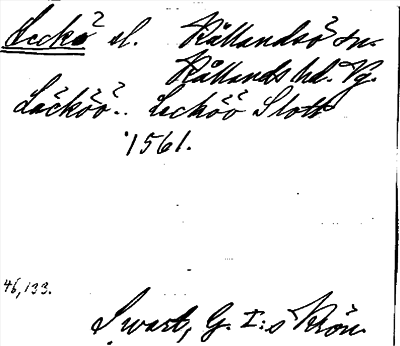 Leckö sl. Kållandsö sn.
Kållands hd. Vg.
Läcköö.. Lecköö Slott
1561.
46,133.
Swart, G. I:s Krön.